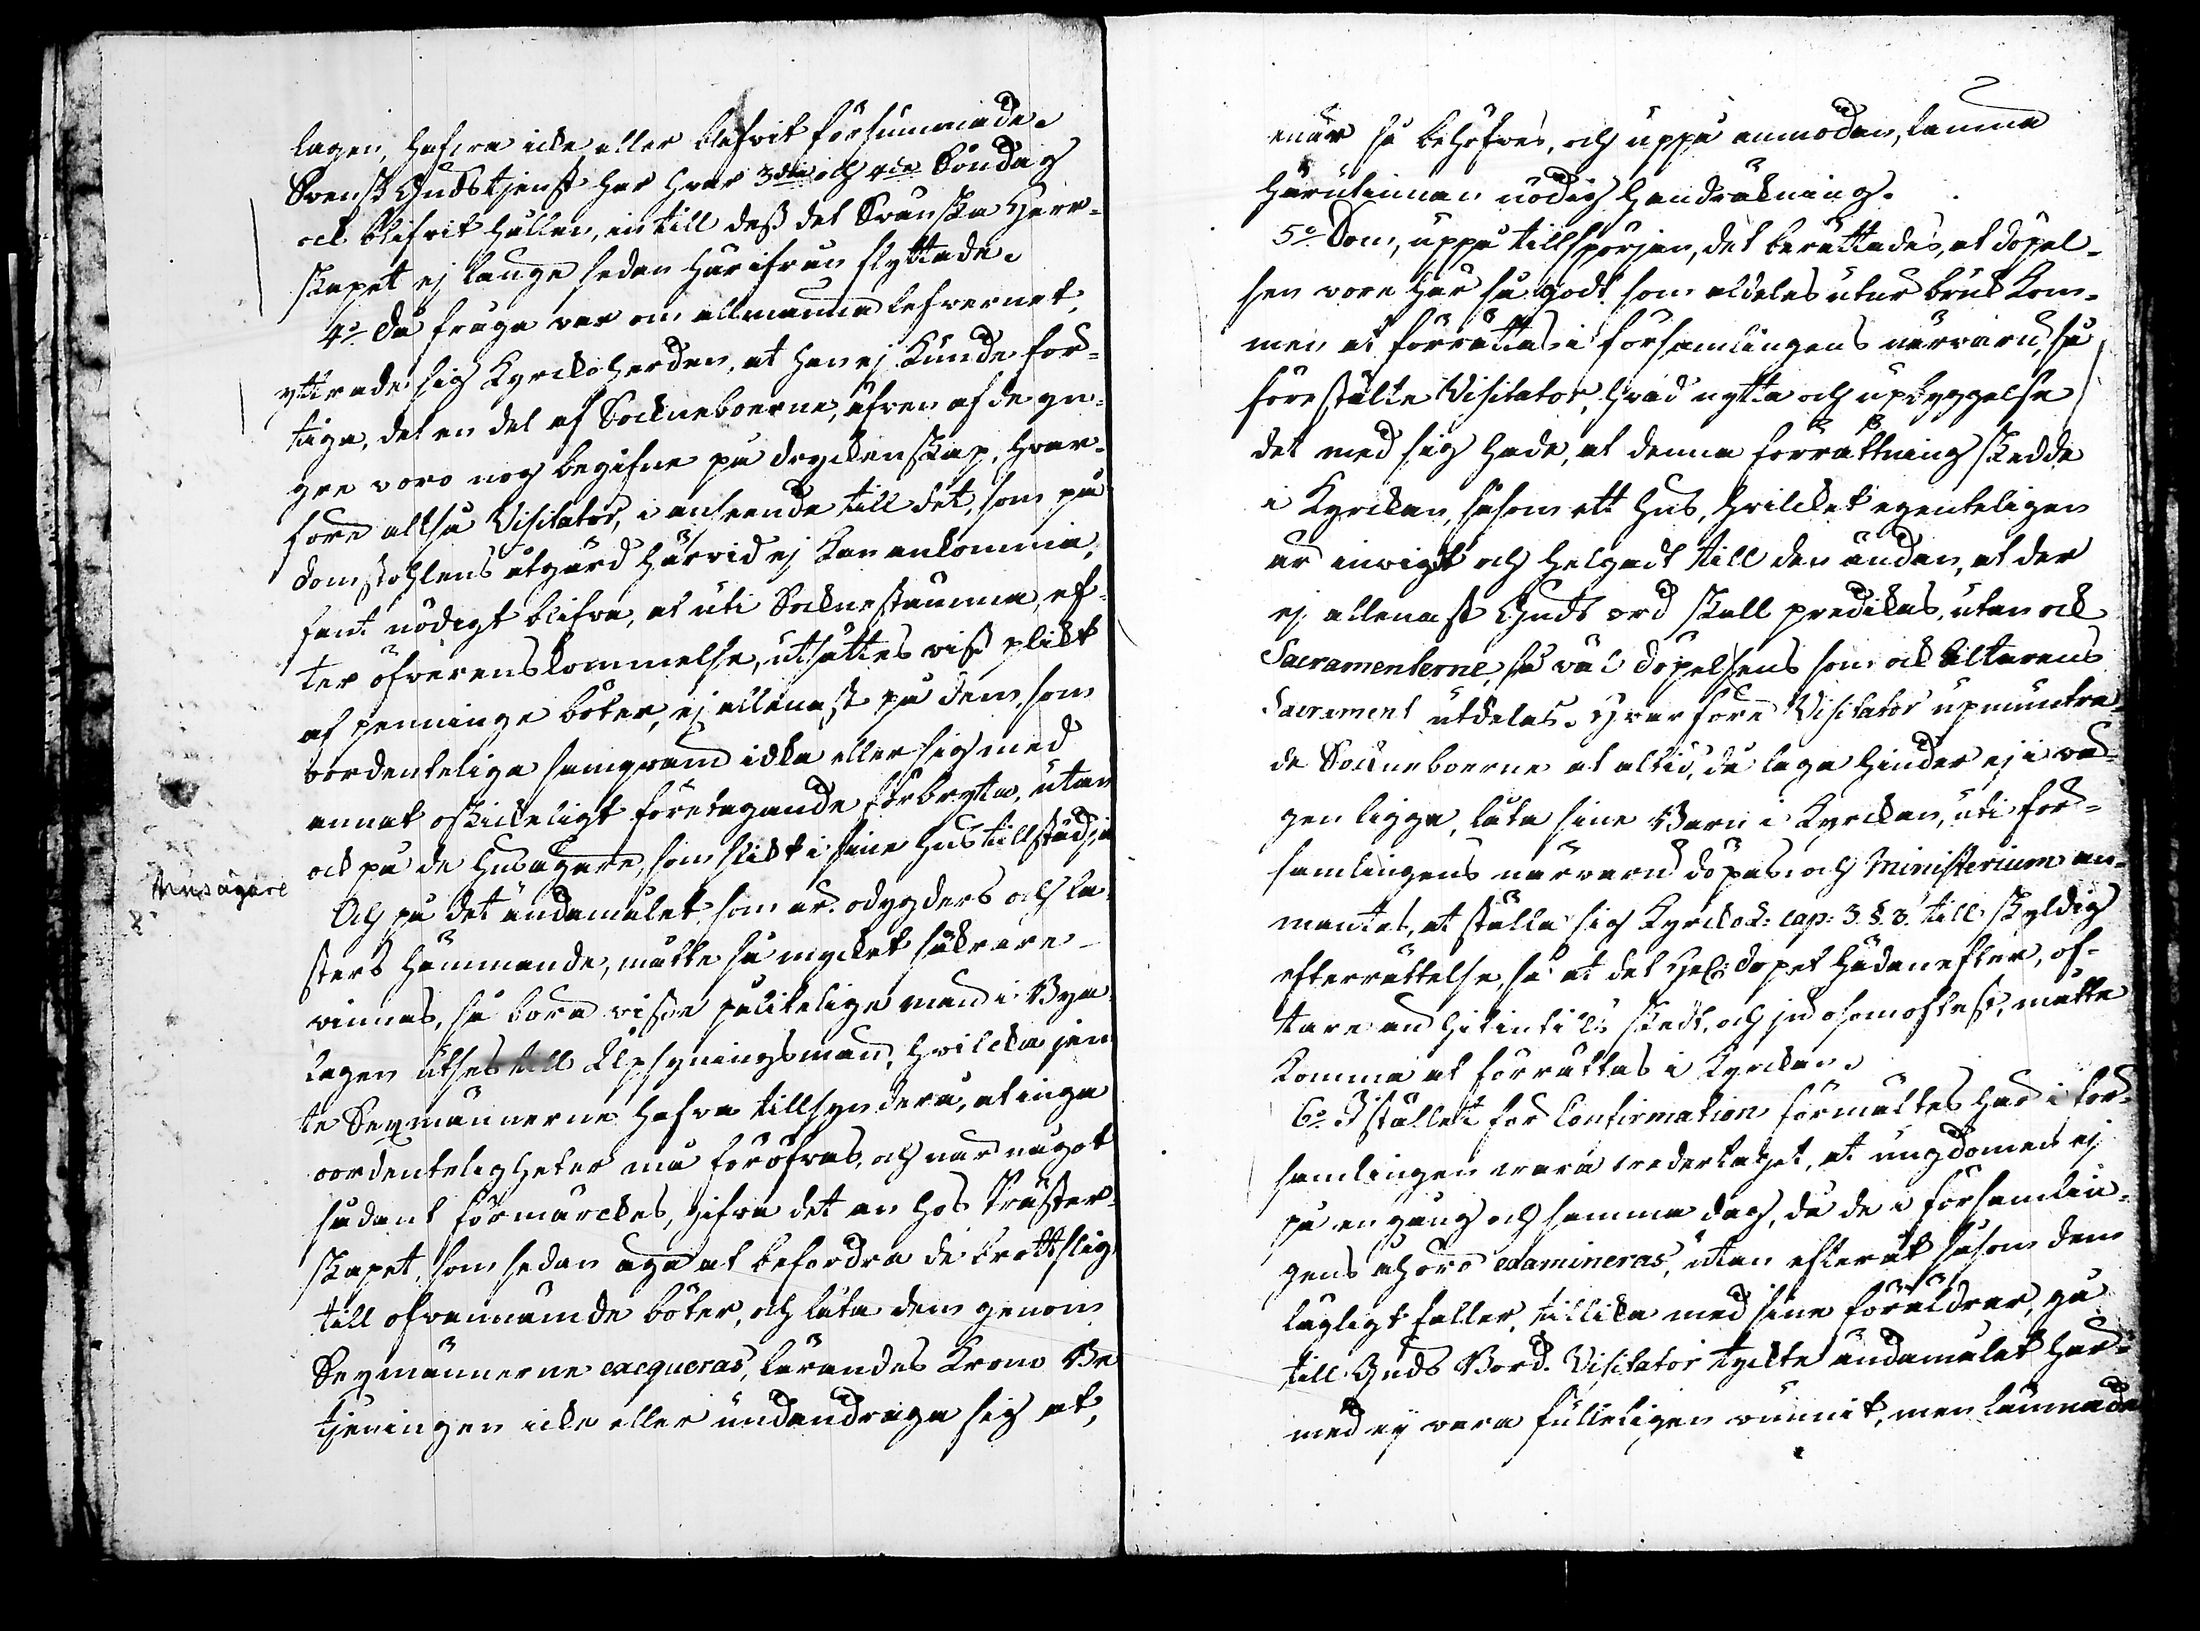 lagen, hafwa icke eller blefvit försummade.
Svensk Gudstjenst har hvar 3die och 4de Söndag
ock blifvit hållen, intill dess det Svenska Herr-
skapet ej länge sedan härifrån flyttade.
4o Då fråga var om allmänna lefvernet,
yttrade sig Kyrckoherden, at han ej kunde för-
tiga, det en del af Sockneboerne, äfven af de yn-
gre voro nog begifne på dryckenskap, hvar-
före altså Visitator, i anseende till det, som på
domstohlens åtgärd härvid ej kan ankomma,
fant nödigt blifva, at uti Sockne stämma, ef-
ter öfverenskommelse, utsättes viss plikt
af penninge böter, ej allenast på dem, som
oordenteliga samqväm idka eller sig med
annat oskickeligt företagande förbryta, utan
ock på de Husägare, som slikt i sine hus tillstädja
Husägare
Och på det ändamålet, som är odygders och la-
sters hämmande, måtte så mycket säkrare
vinnas, så böra visse pålitelige män i Bya
lagen utses till Upsyningsmän, hvilcka jem
te Sexmännerne hafva tillsyn derå, at inga
oordenteligheter må föröfvas, och när något
sådant förmärckes, gifva det an hos Präster-
skapet, som sedan äga at befordra de brottslig
till ofvannämde böter, och låta dem genom
Sexmännerne exequeras, lärandes Krono Be
tjeningen icke eller undandraga sig at,
enär så behöfves, och uppå anmodan, lämna
härutinnan nödig handräkning.
5o Som, uppå tillspörjan, det berättades, at döpel-
sen vore här så godt som aldeles utur bruk kom-
men at förrättas i församlingens närvaru, så
förestälte Visitator, hvad nytta och upbyggelse
det med sig hade, at denna förrättning skedde
i Kyrckan, såsom ett hus, hvilcket egenteligen
är invigt och helgadt till den ändan, at der
ej allenast Guds ord skall predikas, utan ock
Sacramenterne, så väl döpelsens som ock Altarens
Sacrament utdelas. Hvarföre Visitator upmuntra-
de Sockneboerne at altid, då laga hinder ej i vä-
gen ligga, låta sine Barn i Kyrckan, uti för-
samlingens närvaru döpas, och Ministerium an-
mantes, at ställa sig Kyrckol: cap: 3. §. 3. till skyldig
efterrättelse, så at det Hel: dopet hädanefter, of-
tare än hitintils skedt, och ju som oftast, måtte
komma at förrättas i Kyrckan.
6o I stället för Confirmation förmältes här i för-
samlingen vara vedertaget, at ungdomen ej
på en gång och samma dag, då de i församlin-
gens åhöro examineras, utan efteråt såsom dem
lägligt faller, tillika med sine föräldrar, gå
till Guds Bord. Visitator tyckte ändamålet här-
med ej vara fulleligen vunnit, men lämnade